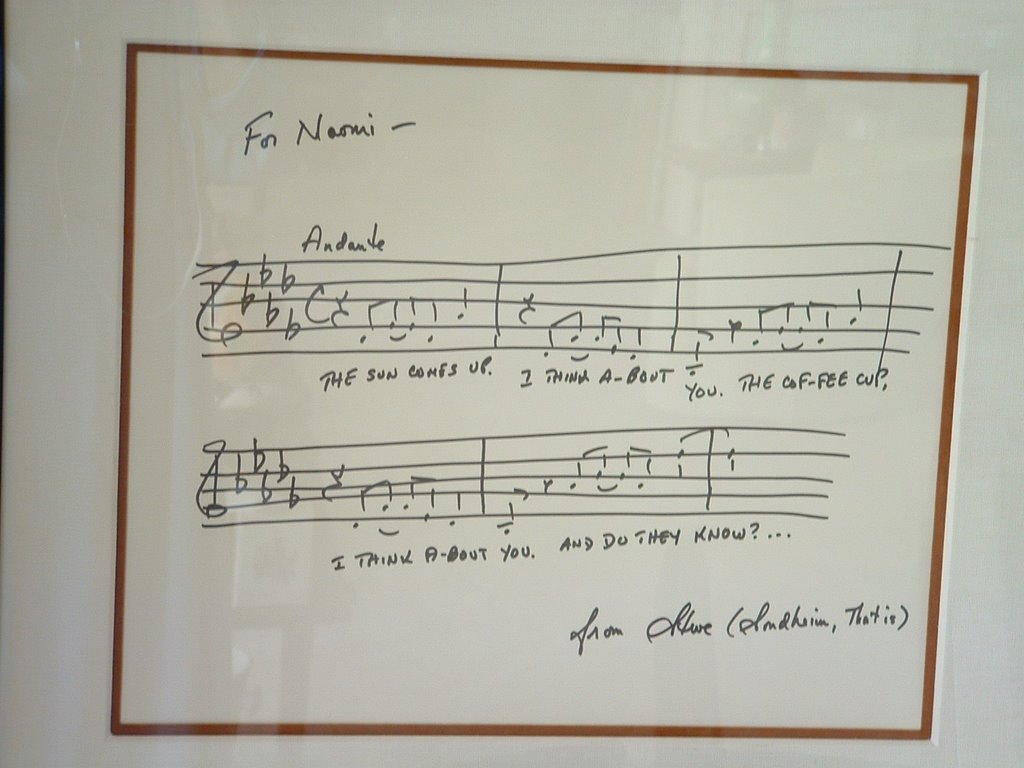 For Naomi —
Andante
THE SUN COMES UP. I THINK A-BOUT YOU. THE COF-FEE CUP,
I THINK A-BOUT YOU. AND DO THEY KNOW?...
from Steve (Sondheim, That is)